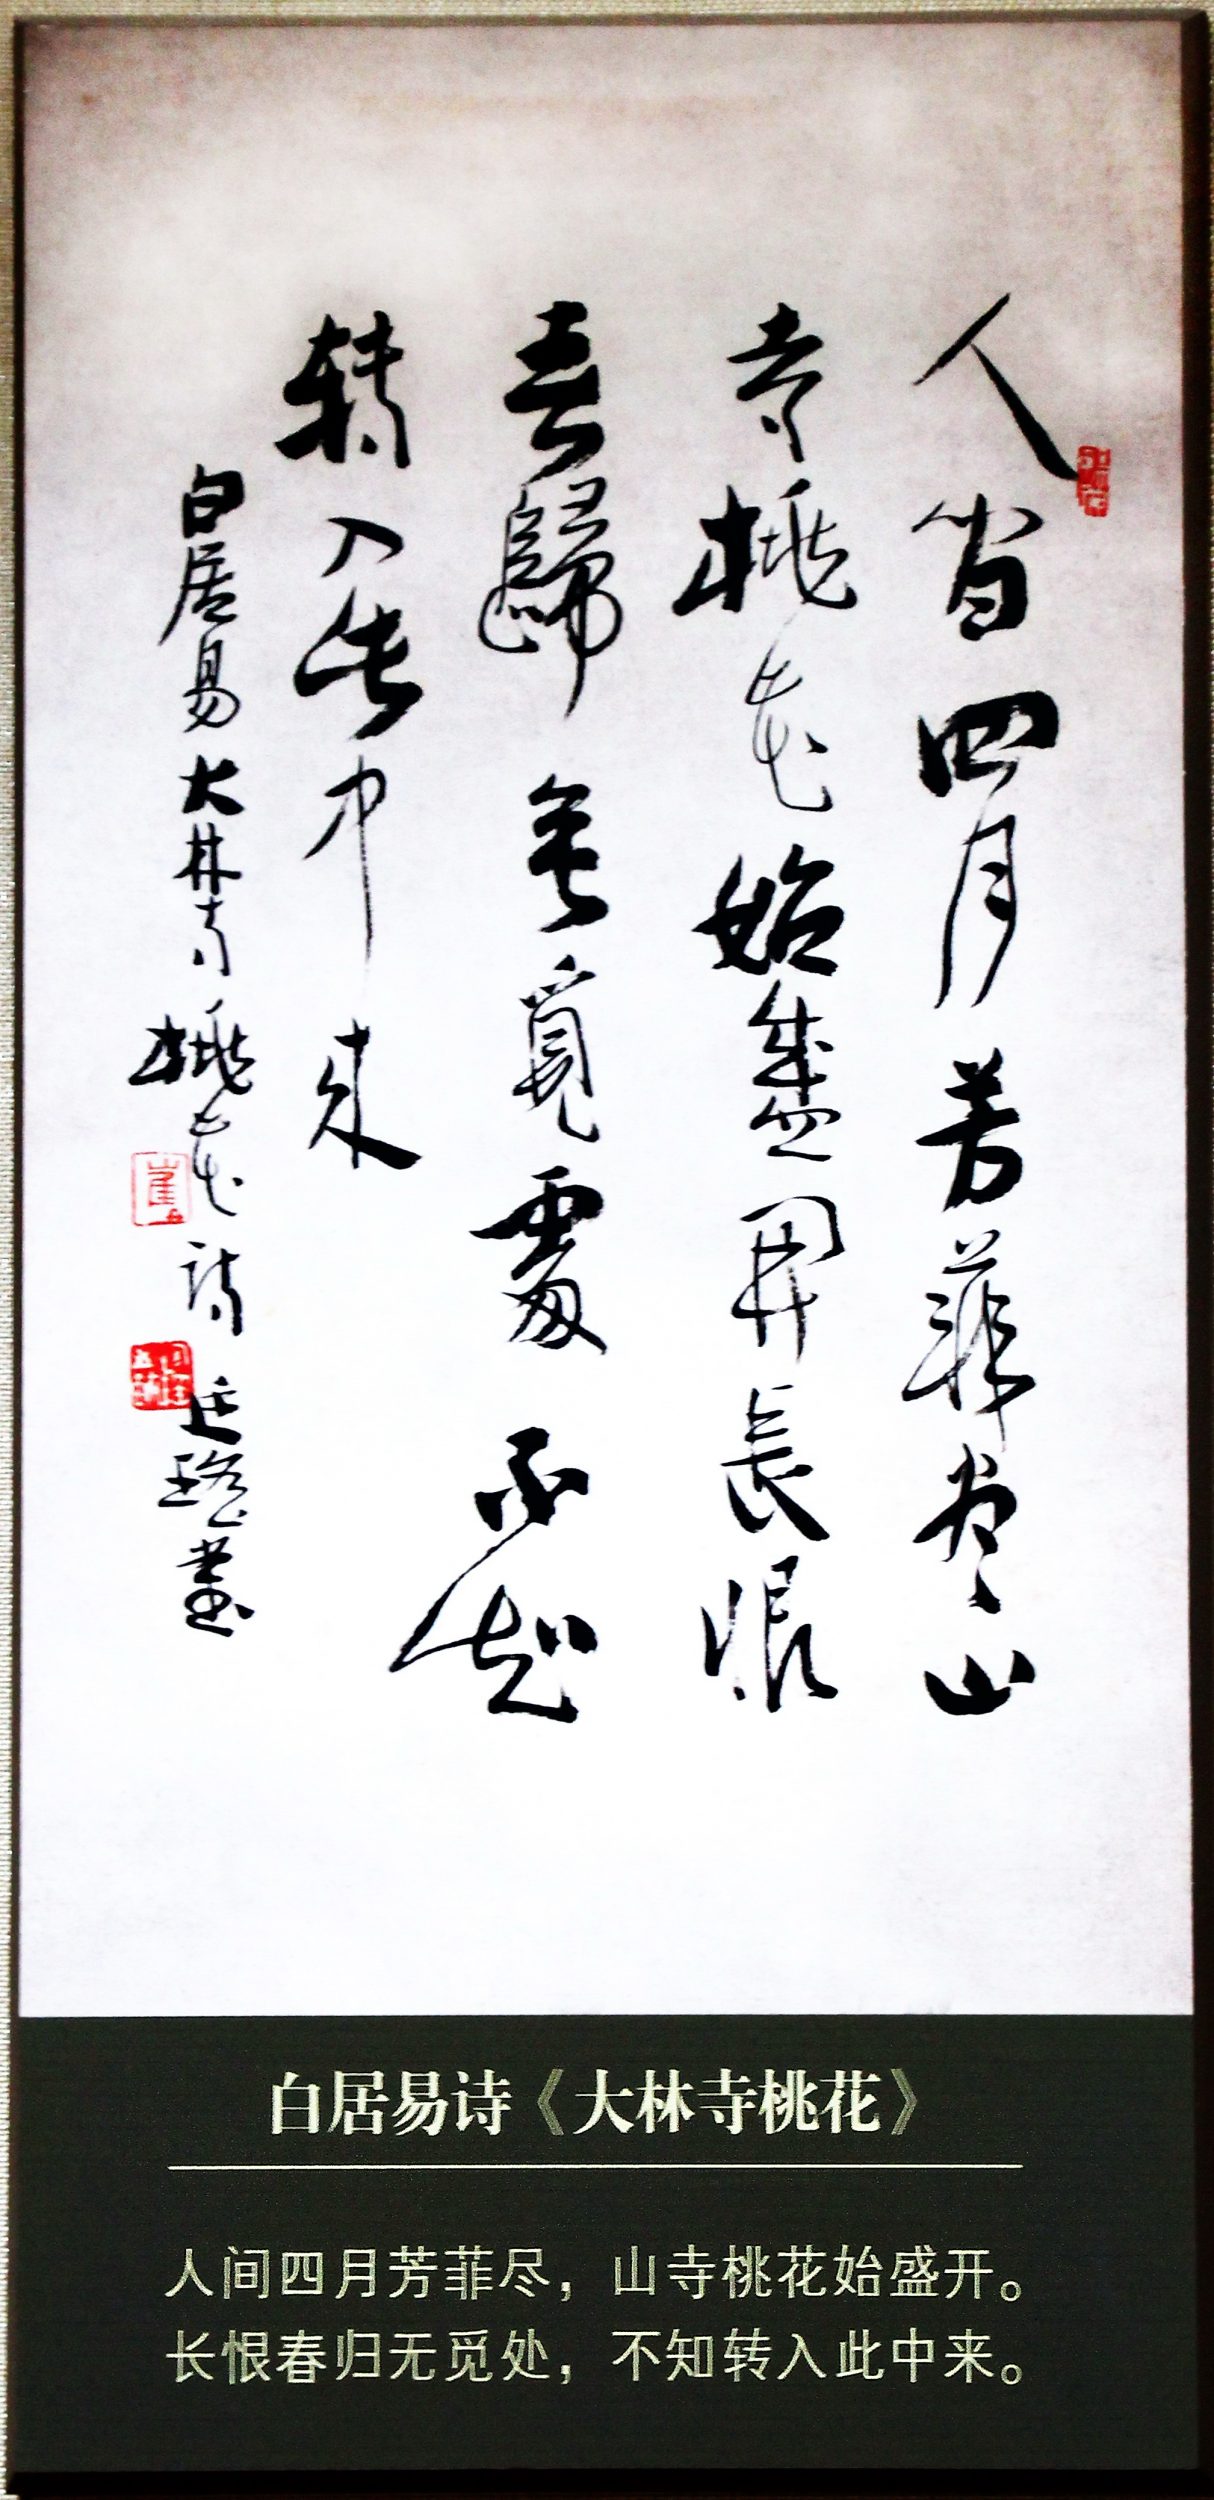 人間四月芳菲尽山
寺桃花始盛開長恨
春歸無覓處不知
转入此中来
白居易大林寺桃花诗 廷瑶書
白居易诗《大林寺桃花》
人间四月芳菲尽，山寺桃花始盛开。
长恨春归无觅处，不知转入此中来。